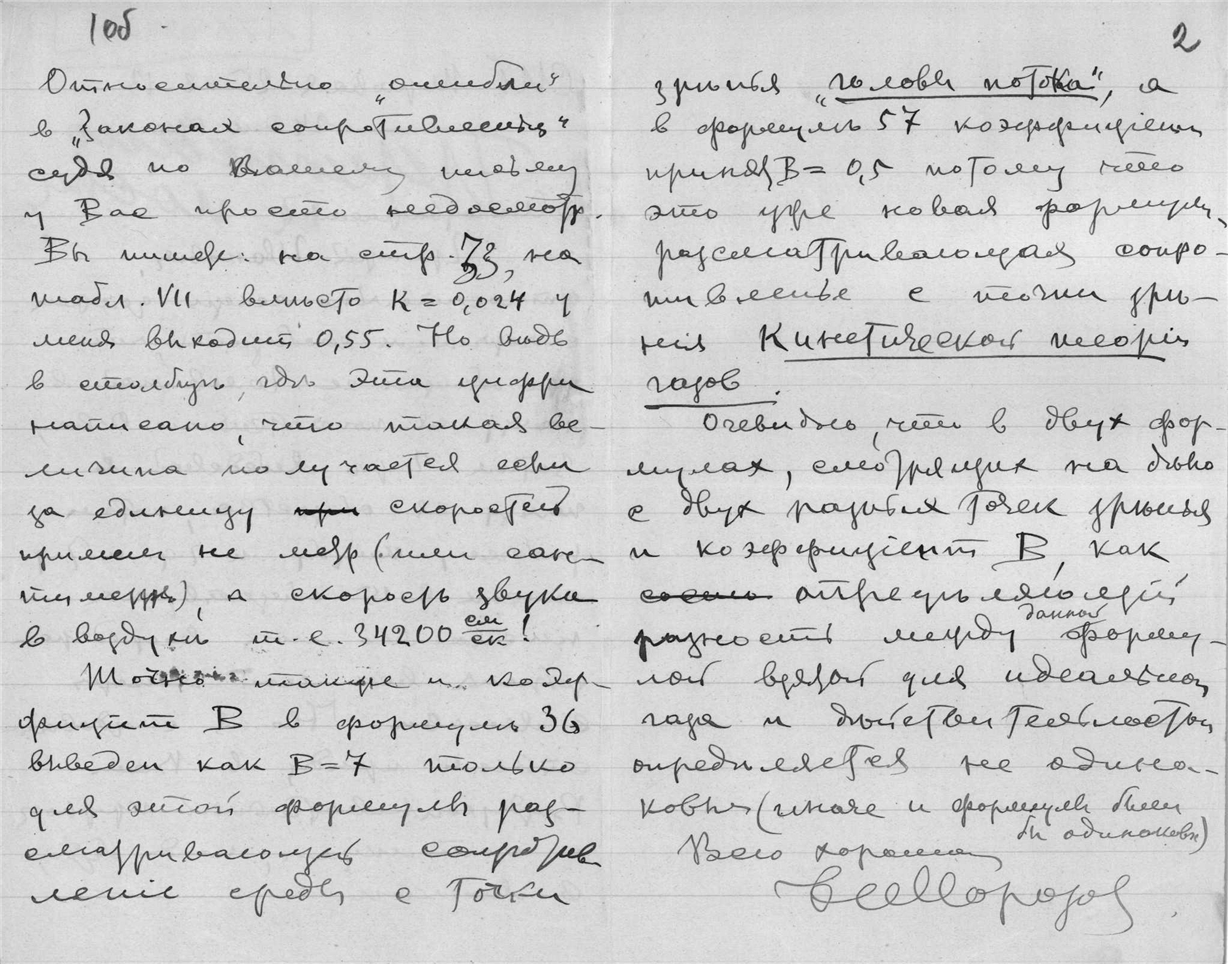 1об
Относительно „ошибки“
в „Законах сопротивленія“
судя по Вашему письму
у Вас просто недосмотр.
Вы пишете: на стр. 73, на
табл. VII вмѣсто K = 0,024 у
меня выходит 0,55. Но вѣдь
в столбцѣ, гдѣ эта цифра
написано, что такая ве-
личина получается если
за единицу при скоростей
примем не метр (или сан-
тиметр), а скорость звука
в воздухѣ т.е. 34200 см/сек!
Точно также и коэф-
фиціент В в формулѣ 36
выведен как В=7 только
для этой формулы раз-
сматривающей сопротив
леніе среды с точки
2
зрѣнья „головы потока“, а
в формулѣ 57 коэффиціент
принят В = 0,5 потому что
это уже новая формула,
разсматривающая сопро-
тивленье с точки зрѣ-
нія Кинетической теоріи
газов.
Очевидно, что в двух фор-
мулах, смотрящих на дѣло
с двух разных точек зрѣнья
и коэффиціент В, как
опредѣляющій
данной
разность между форму-
лой взятой для идеальнаго
газа и дѣйствительностью
определяется не одина-
ковым (иначе и формулы были
бы одинаковы)
Всего хорошаго
Н. Морозов